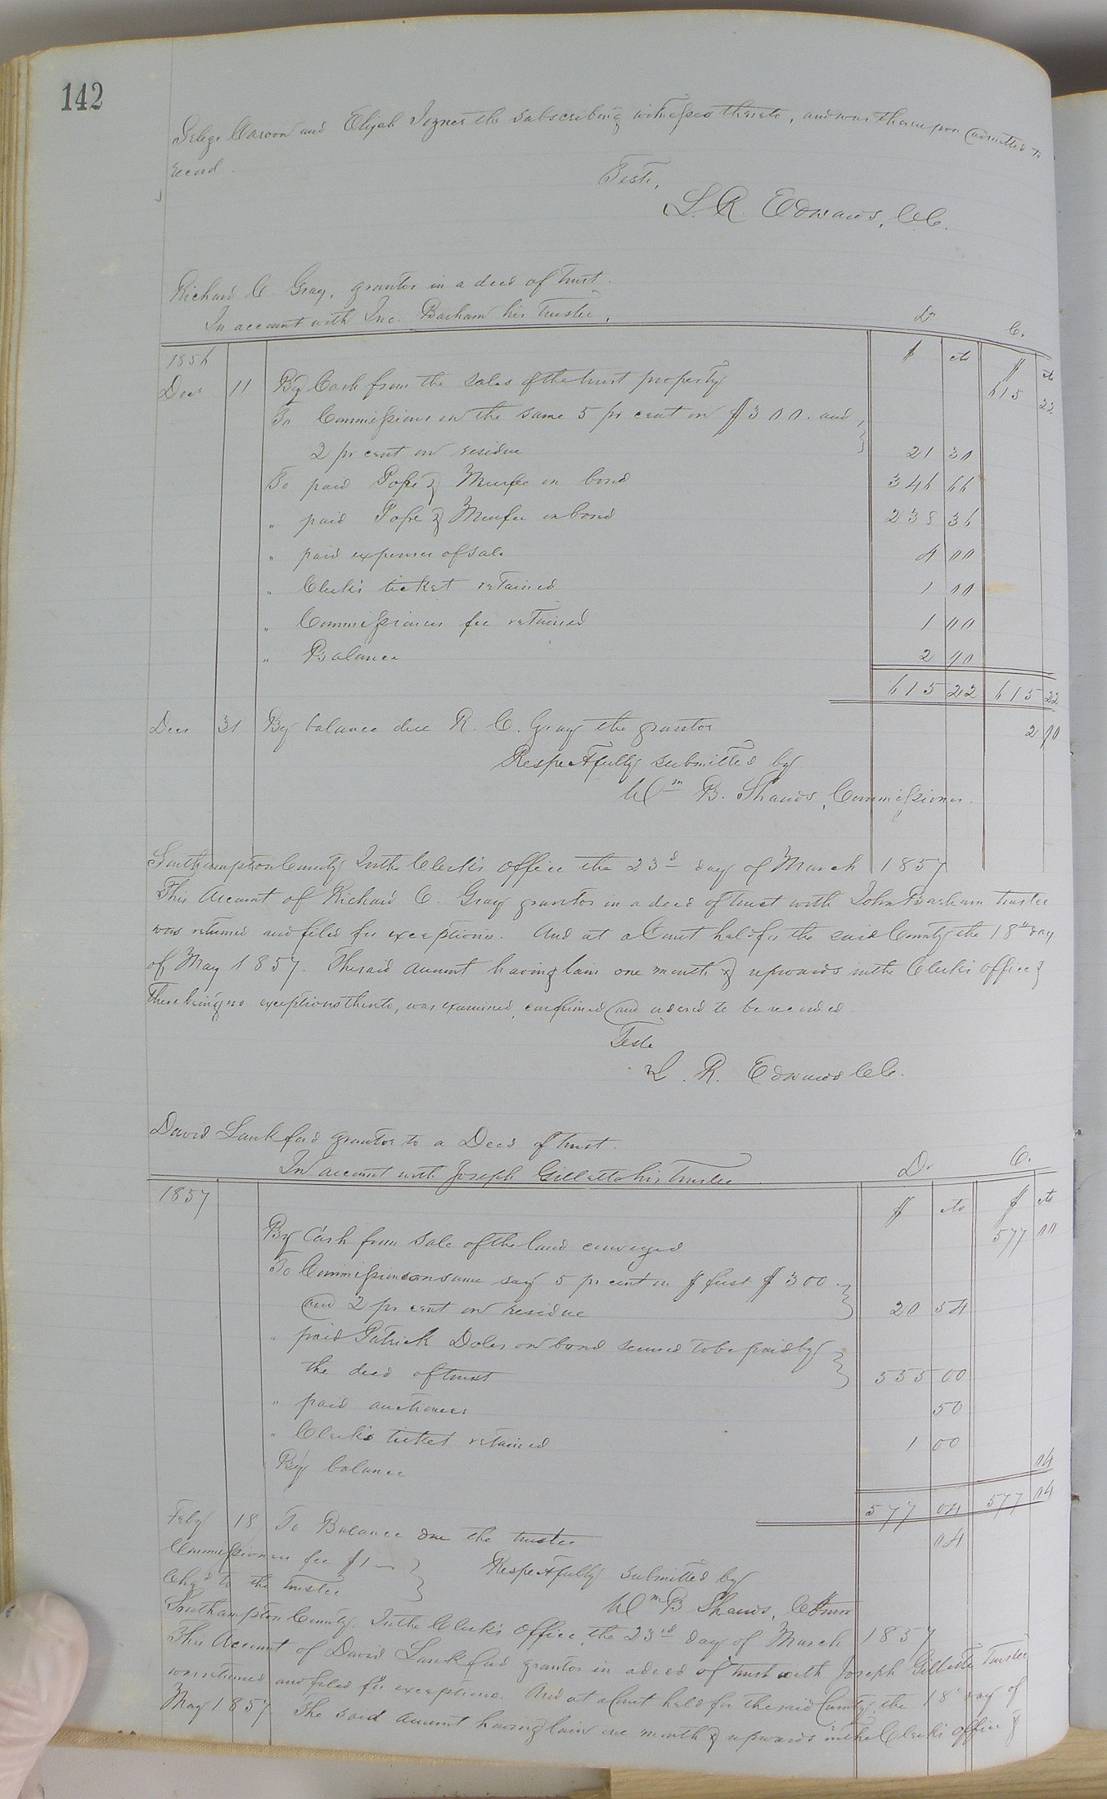 142
and Elijah Joyner the subscribing witnesses thereto, and was thereupon admitted to
record.
Teste,
L. R. Edwards, C.C.
Richard C. Gray, grantor in a deed of trust.
In account with Jno. Barham his Trustee.
Dr. Cr.
1856 $ cts $ cts
Decr 11 By Cash from the sales of the trust property 615 22
To Commissions on the same 5 pr cent on $300. and
2 pr cent on residue 21 30
To paid Pope & Murfee on bond 346 66
" paid Pope & Murfee on bond 238 36
" paid expenses of sale 4 00
" Clerk's ticket retained 1 00
" Commissioners fee retained 1 00
" Balance 2 90
615 22 615 22
Decr 31 By balance due R. C. Gray the grantor 2 90
Respectfully submitted by
Wm B. Shands, Commissioner.
Southampton County. In the Clerk's Office the 23d day of March 1857
This Account of Richard C. Gray grantor in a deed of trust with John Barham trustee
was returned and filed for exceptions. And at a Court held for the said County the 18th day
of May 1857. The said account having lain one month & upwards in the Clerk's office &
there being no exceptions thereto, was examined, confirmed and ordered to be recorded.
Teste
L. R. Edwards C.C.
David Lankford grantor to a Deed of trust.
In account with Joseph Gillette his Trustee
Dr. Cr.
1857 $ cts $ cts
By Cash from sale of the land conveyed 577 00
To Commissions on same say 5 pr cent on $ first $300
and 2 pr cent on residue 20 54
" paid Patrick Doles on bond secured to be paid by
the deed of trust 555 00
" paid auctioneer 50
" Clerk's ticket retained 1 00
By balance 04
577 04 577 04
Feby 18 To Balance due the trustee 04
Commissioners fee $1—
Chgd to the trustee
Respectfully submitted by
Wm B Shands, Commr
Southampton County. In the Clerk's Office, the 23rd day of March 1857
This Account of David Lankford grantor in a deed of trust with Joseph Gillette Trustee
was returned and filed for exceptions. And at a Court held for the said County, the 18th day of
May 1857. The said account having lain one month & upwards in the Clerk's office &